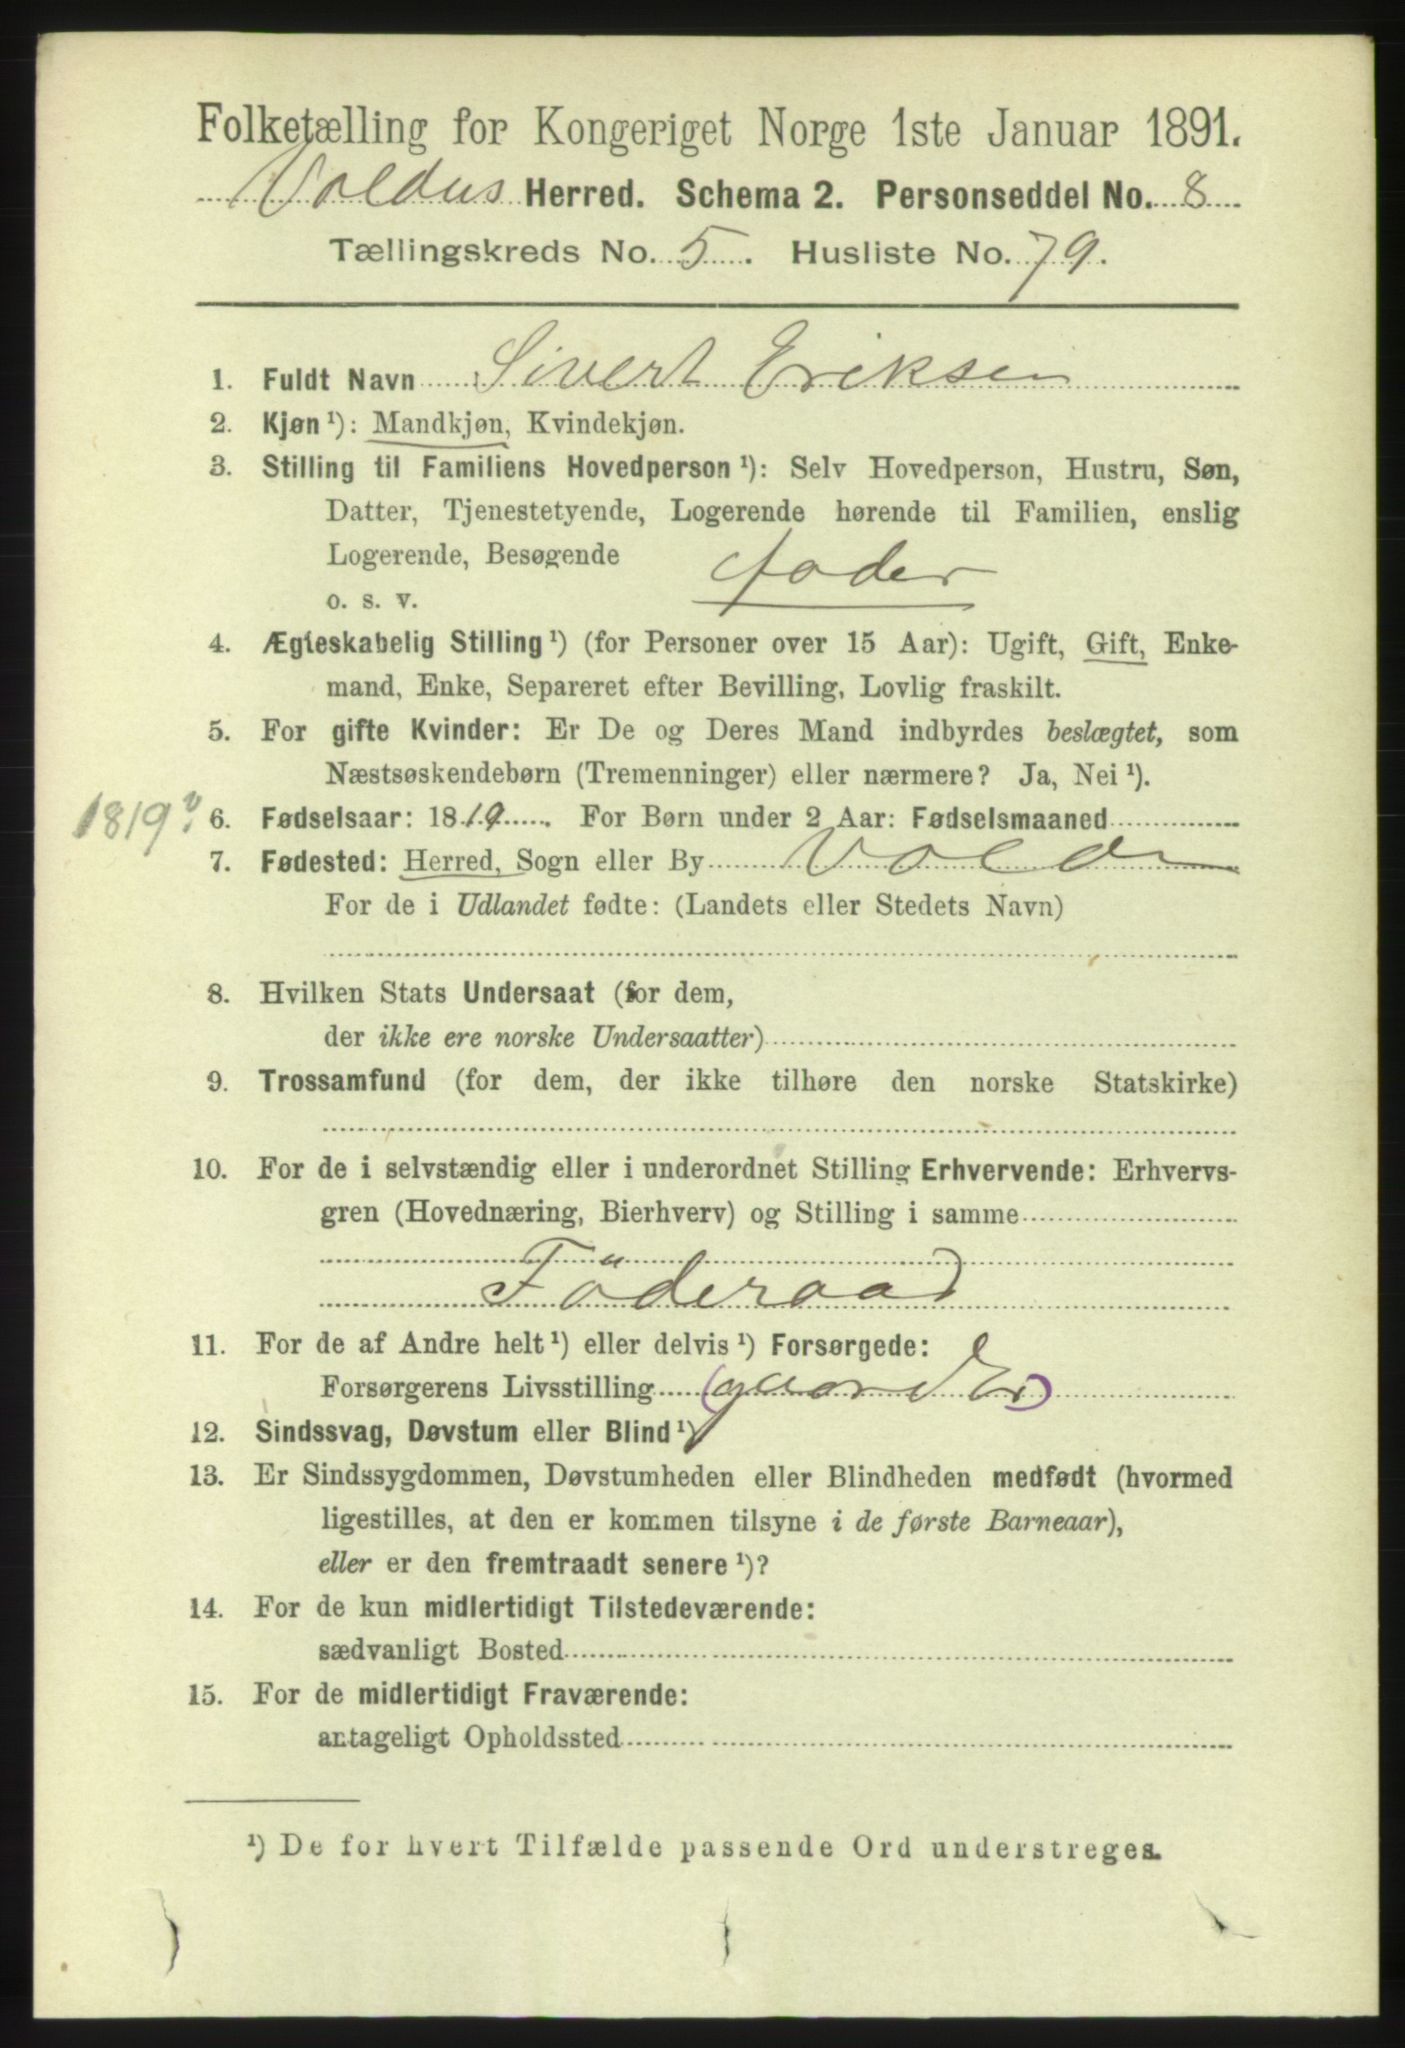 Folketælling for Kongeriget Norge 1ste Januar 1891.
Voldens Herred. Schema 2. Personseddel No. 8
Tællingskreds No. 5. Husliste No. 79.
1. Fuldt Navn Sivert Eriksen
2. Kjøn¹): Mandkjøn, Kvindekjøn.
3. Stilling til Familiens Hovedperson¹): Selv Hovedperson, Hustru, Søn,
Datter, Tjenestetyende, Logerende hørende til Familien, enslig
Logerende, Besøgende fader
o. s. v.
4. Ægteskabelig Stilling¹) (for Personer over 15 Aar): Ugift, Gift, Enke-
mand, Enke, Separeret efter Bevilling, Lovlig fraskilt.
5. For gifte Kvinder: Er De og Deres Mand indbyrdes beslægtet, som
Næstsøskendebørn (Tremenninger) eller nærmere? Ja, Nei¹).
1819? 6. Fødselsaar: 1819. For Børn under 2 Aar: Fødselsmaaned
7. Fødested: Herred, Sogn eller By Volden
For de i Udlandet fødte: (Landets eller Stedets Navn)
8. Hvilken Stats Undersaat (for dem,
der ikke ere norske Undersaatter)
9. Trossamfund (for dem, der ikke tilhøre den norske Statskirke)
10. For de i selvstændig eller i underordnet Stilling Erhvervende: Erhvervs-
gren (Hovednæring, Bierhverv) og Stilling i samme
Föderaad
11. For de af Andre helt¹) eller delvis¹) Forsørgede:
Forsørgerens Livsstilling (gaardEr)
12. Sindssvag, Døvstum eller Blind¹)
13. Er Sindssygdommen, Døvstumheden eller Blindheden medfødt (hvormed
ligestilles, at den er kommen tilsyne i de første Barneaar),
eller er den fremtraadt senere¹)?
14. For de kun midlertidigt Tilstedeværende:
sædvanligt Bosted
15. For de midlertidigt Fraværende:
antageligt Opholdssted
¹) De for hvert Tilfælde passende Ord understreges.